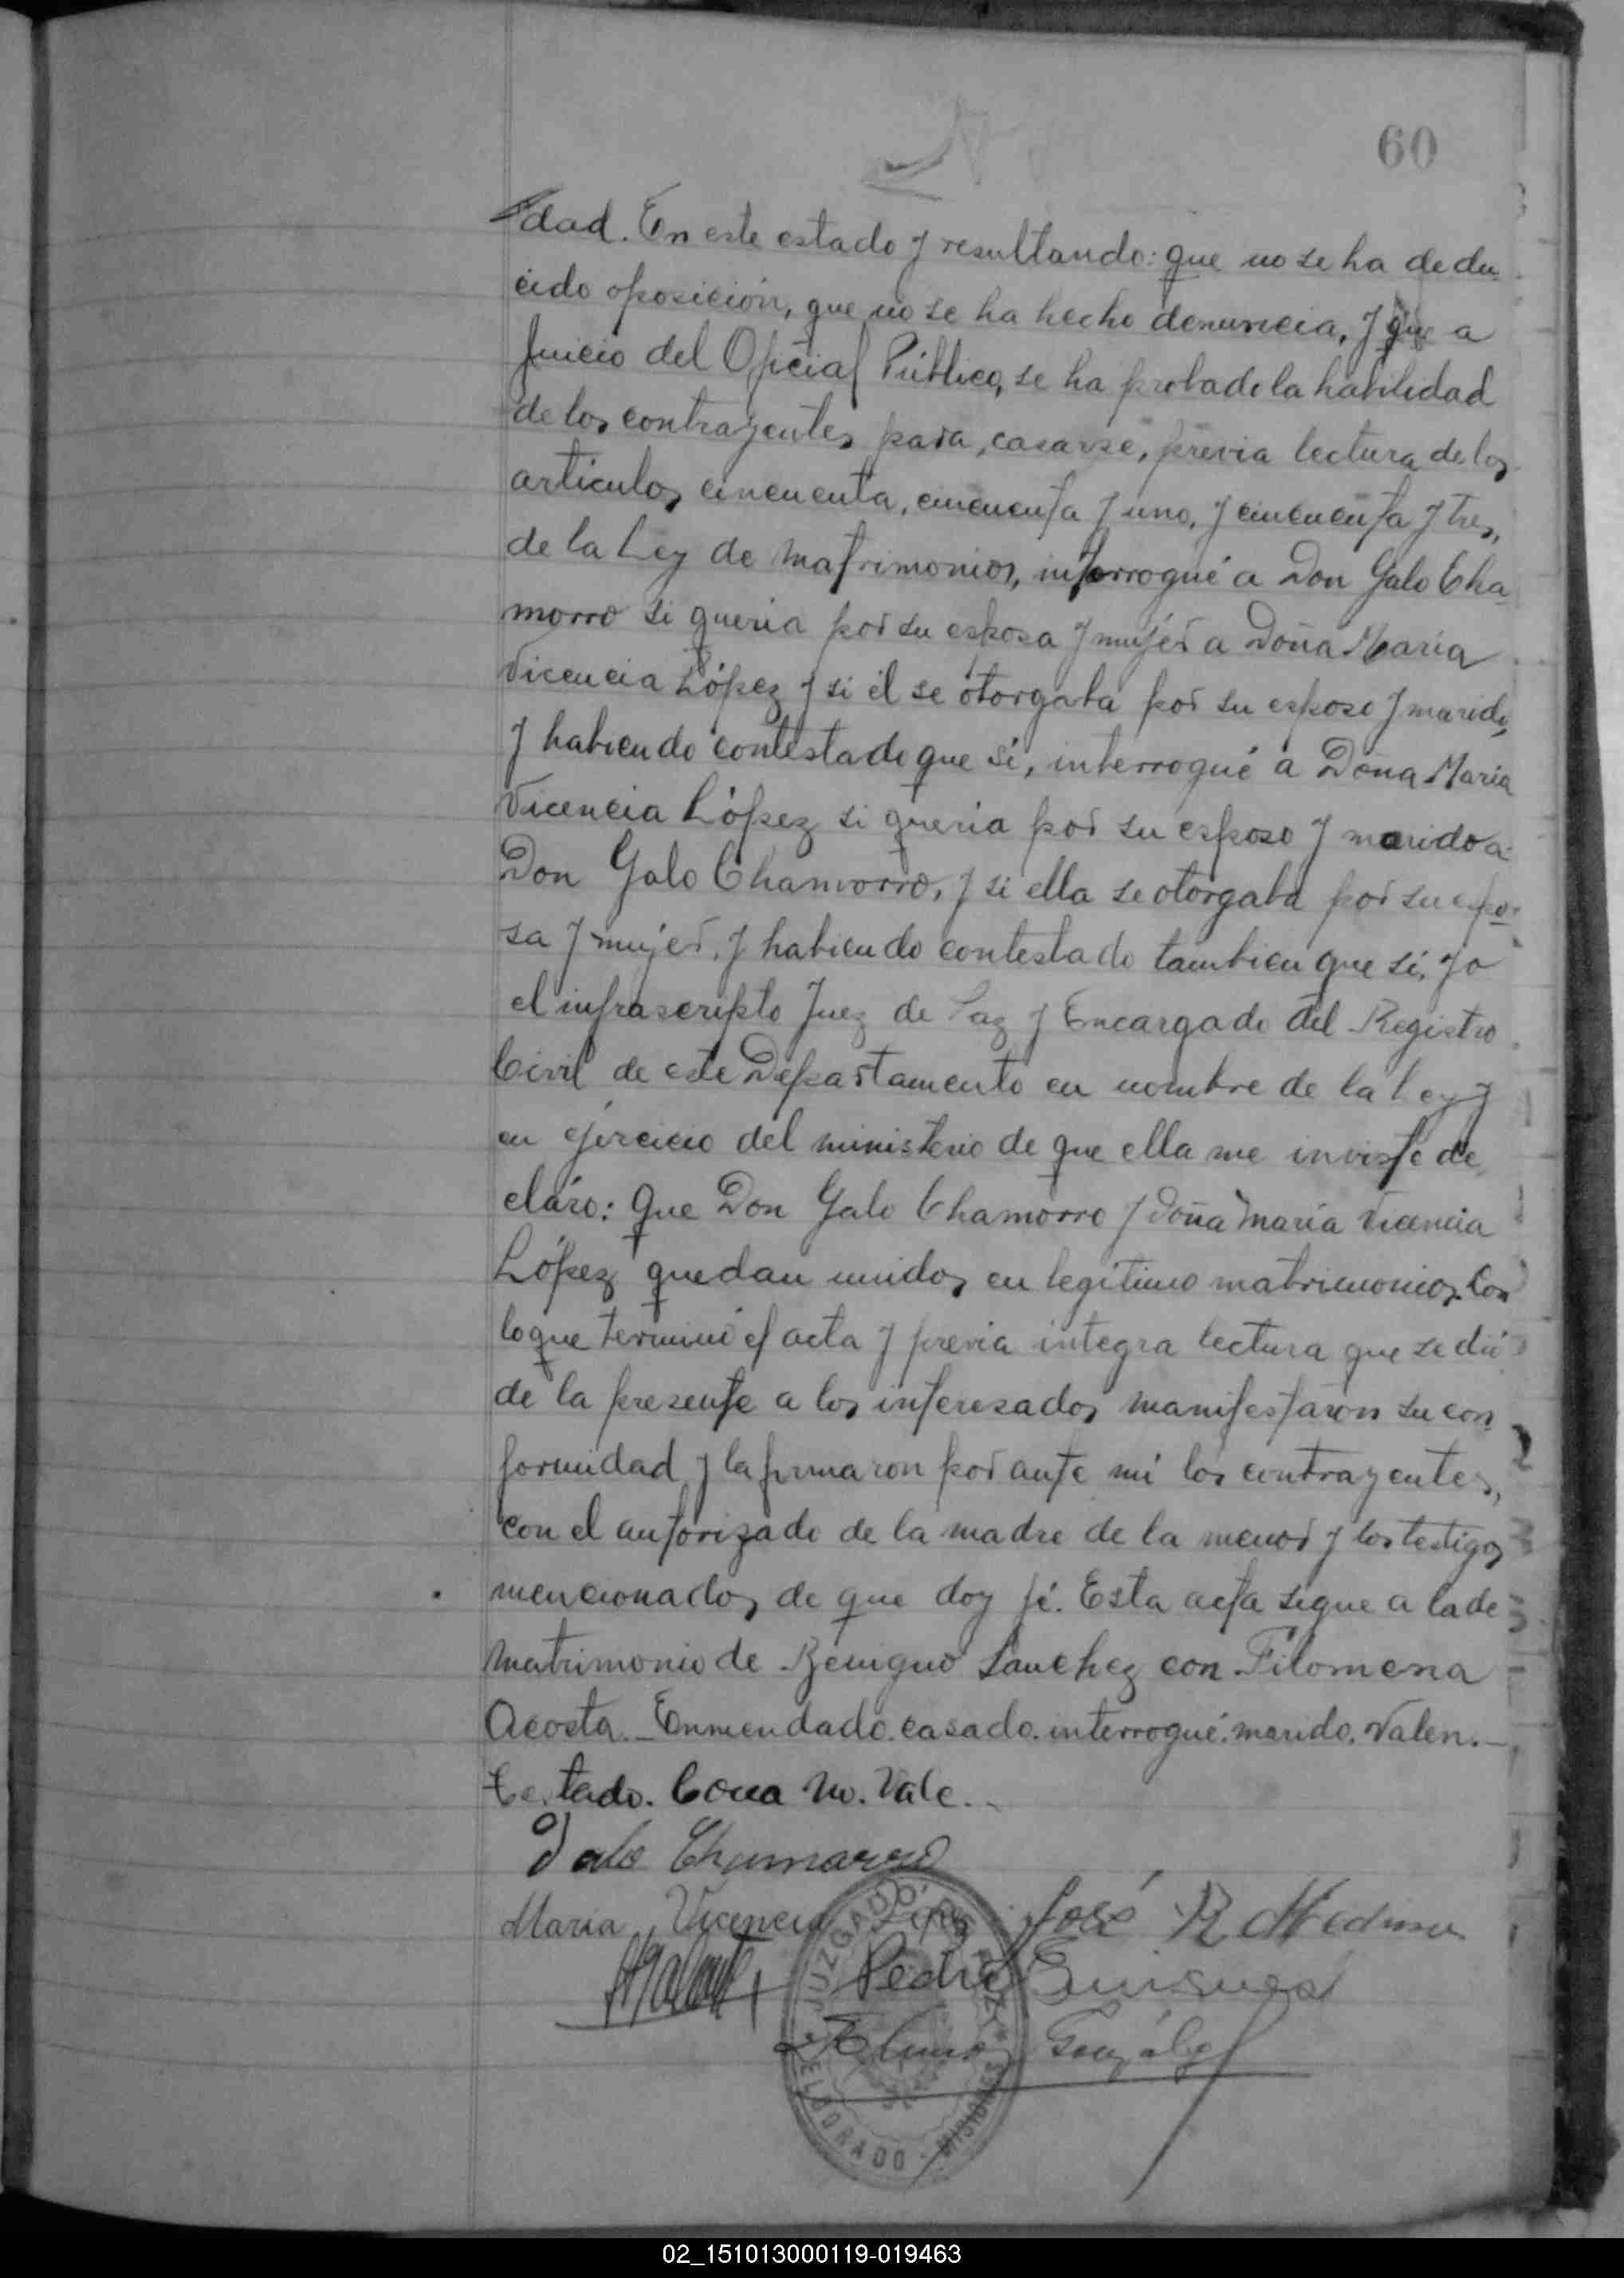 60
dad. En este estado y resultando: que no se ha dedu
cido oposición, que no se ha hecho denuncia, y que a
Juicio del Oficial Público, se ha probado la habilidad
de los contrayentes para casarse, previa lectura de los
articulos cincuenta, cincuenta y uno, y cincuenta y tres,
de la Ley de matrimonios, interrogué a Don Galo Cha-
morro si queria por su esposa y mujer a Doña María
Vicencia López y si él se otorgaba por su esposo y marido,
y habiendo contestado que si, interrogué a Doña Maria
Vicencia López si queria por su esposo y marido a
Don Galo Chamorro, y si ella se otorgaba por su espo-
sa y mujer, y habiendo contestado tambien que si, yo
el infrascripto Juez de Paz y Encargado del Registro
Civil de este Departamento en nombre de la Ley y
en ejercicio del ministerio de que ella me inviste de
claro: Que Don Galo Chamorro y Doña María Vicencia
López quedan unidos en legítimo matrimonio, Con
lo que terminó el acta y previa integra lectura que se dió
de la presente a los interesados manifestaron su con
formidad y la firmaron por ante mi los contrayentes,
con el autorizado de la madre de la menor y los testigos
mencionados, de que doy fé. Esta acta sigue a la de
matrimonio de Benigno Sanchez con Filomena
Acosta._ Enmendado. casado. interrogué. marido. Valen._
Testado. No. Vale._
Galo Chamarro
Maria Vicencia López José R Medina
Pedro
González
JUZGADO DE PAZ
ELDORADO - MISIONES
02_151013000119-019463